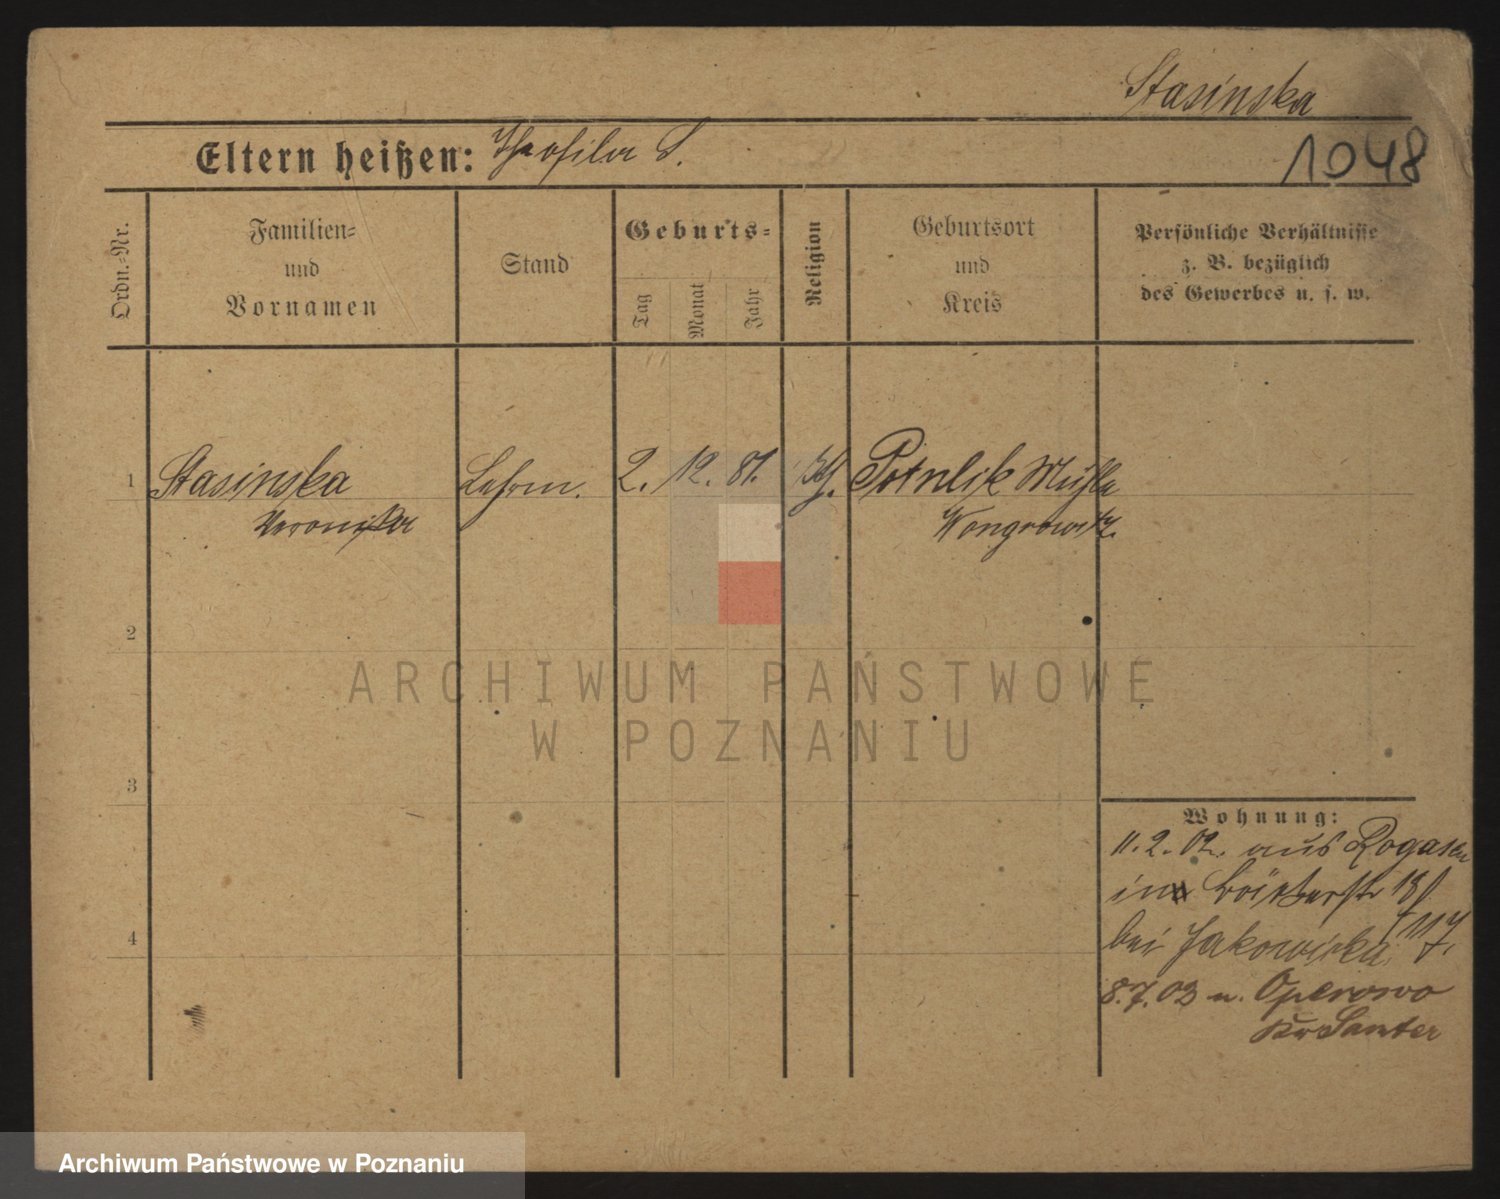 Stasinska
Eltern heißen: Theofila S.
1048
Ordn.-Nr.
Familien-
und
Vornamen
Stand
Geburts-
Tag
Monat
Jahr
Religion
Geburtsort
und
Kreis
Persönliche Verhältnisse
z. B. bezüglich
des Gewerbes u. s. w.
1 Stasinska 2. 12. 81. Potulik Mühle
Veronika Wongrowitz.
2
3
4
Wohnung:
11.2.02. aus Rogasen
in 18
bei
8.7.03 n. Operowo
Kr Samter
ARCHIWUM PAŃSTWOWE
W POZNANIU
Archiwum Państwowe w Poznaniu